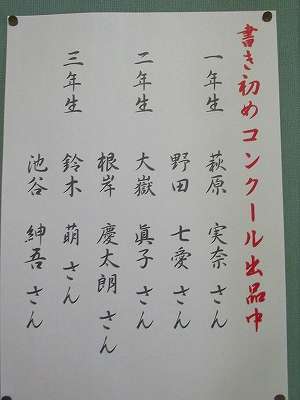 書き初めコンクール出品中
一年生 萩原 実奈 さん
野田 七愛 さん
二年生 大嶽 眞子 さん
根岸 慶太朗 さん
三年生 鈴木 萌 さん
池谷 紳吾 さん